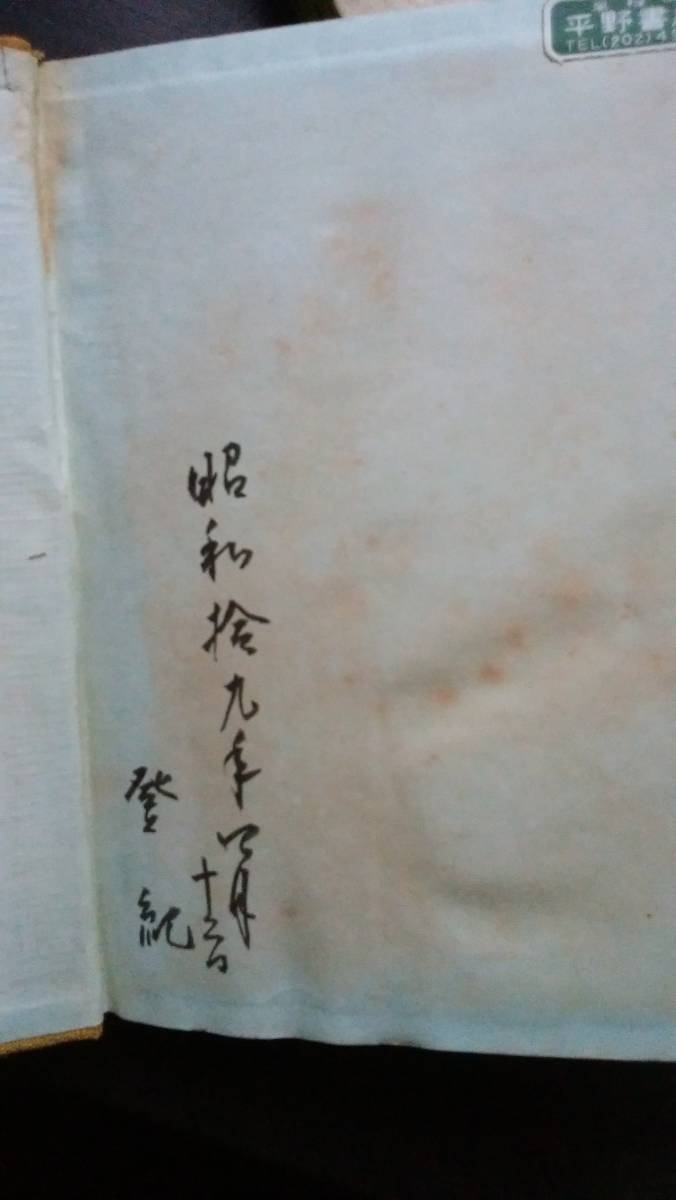 平野書
TEL(202)4
昭和拾九年四月
十二日
登紀